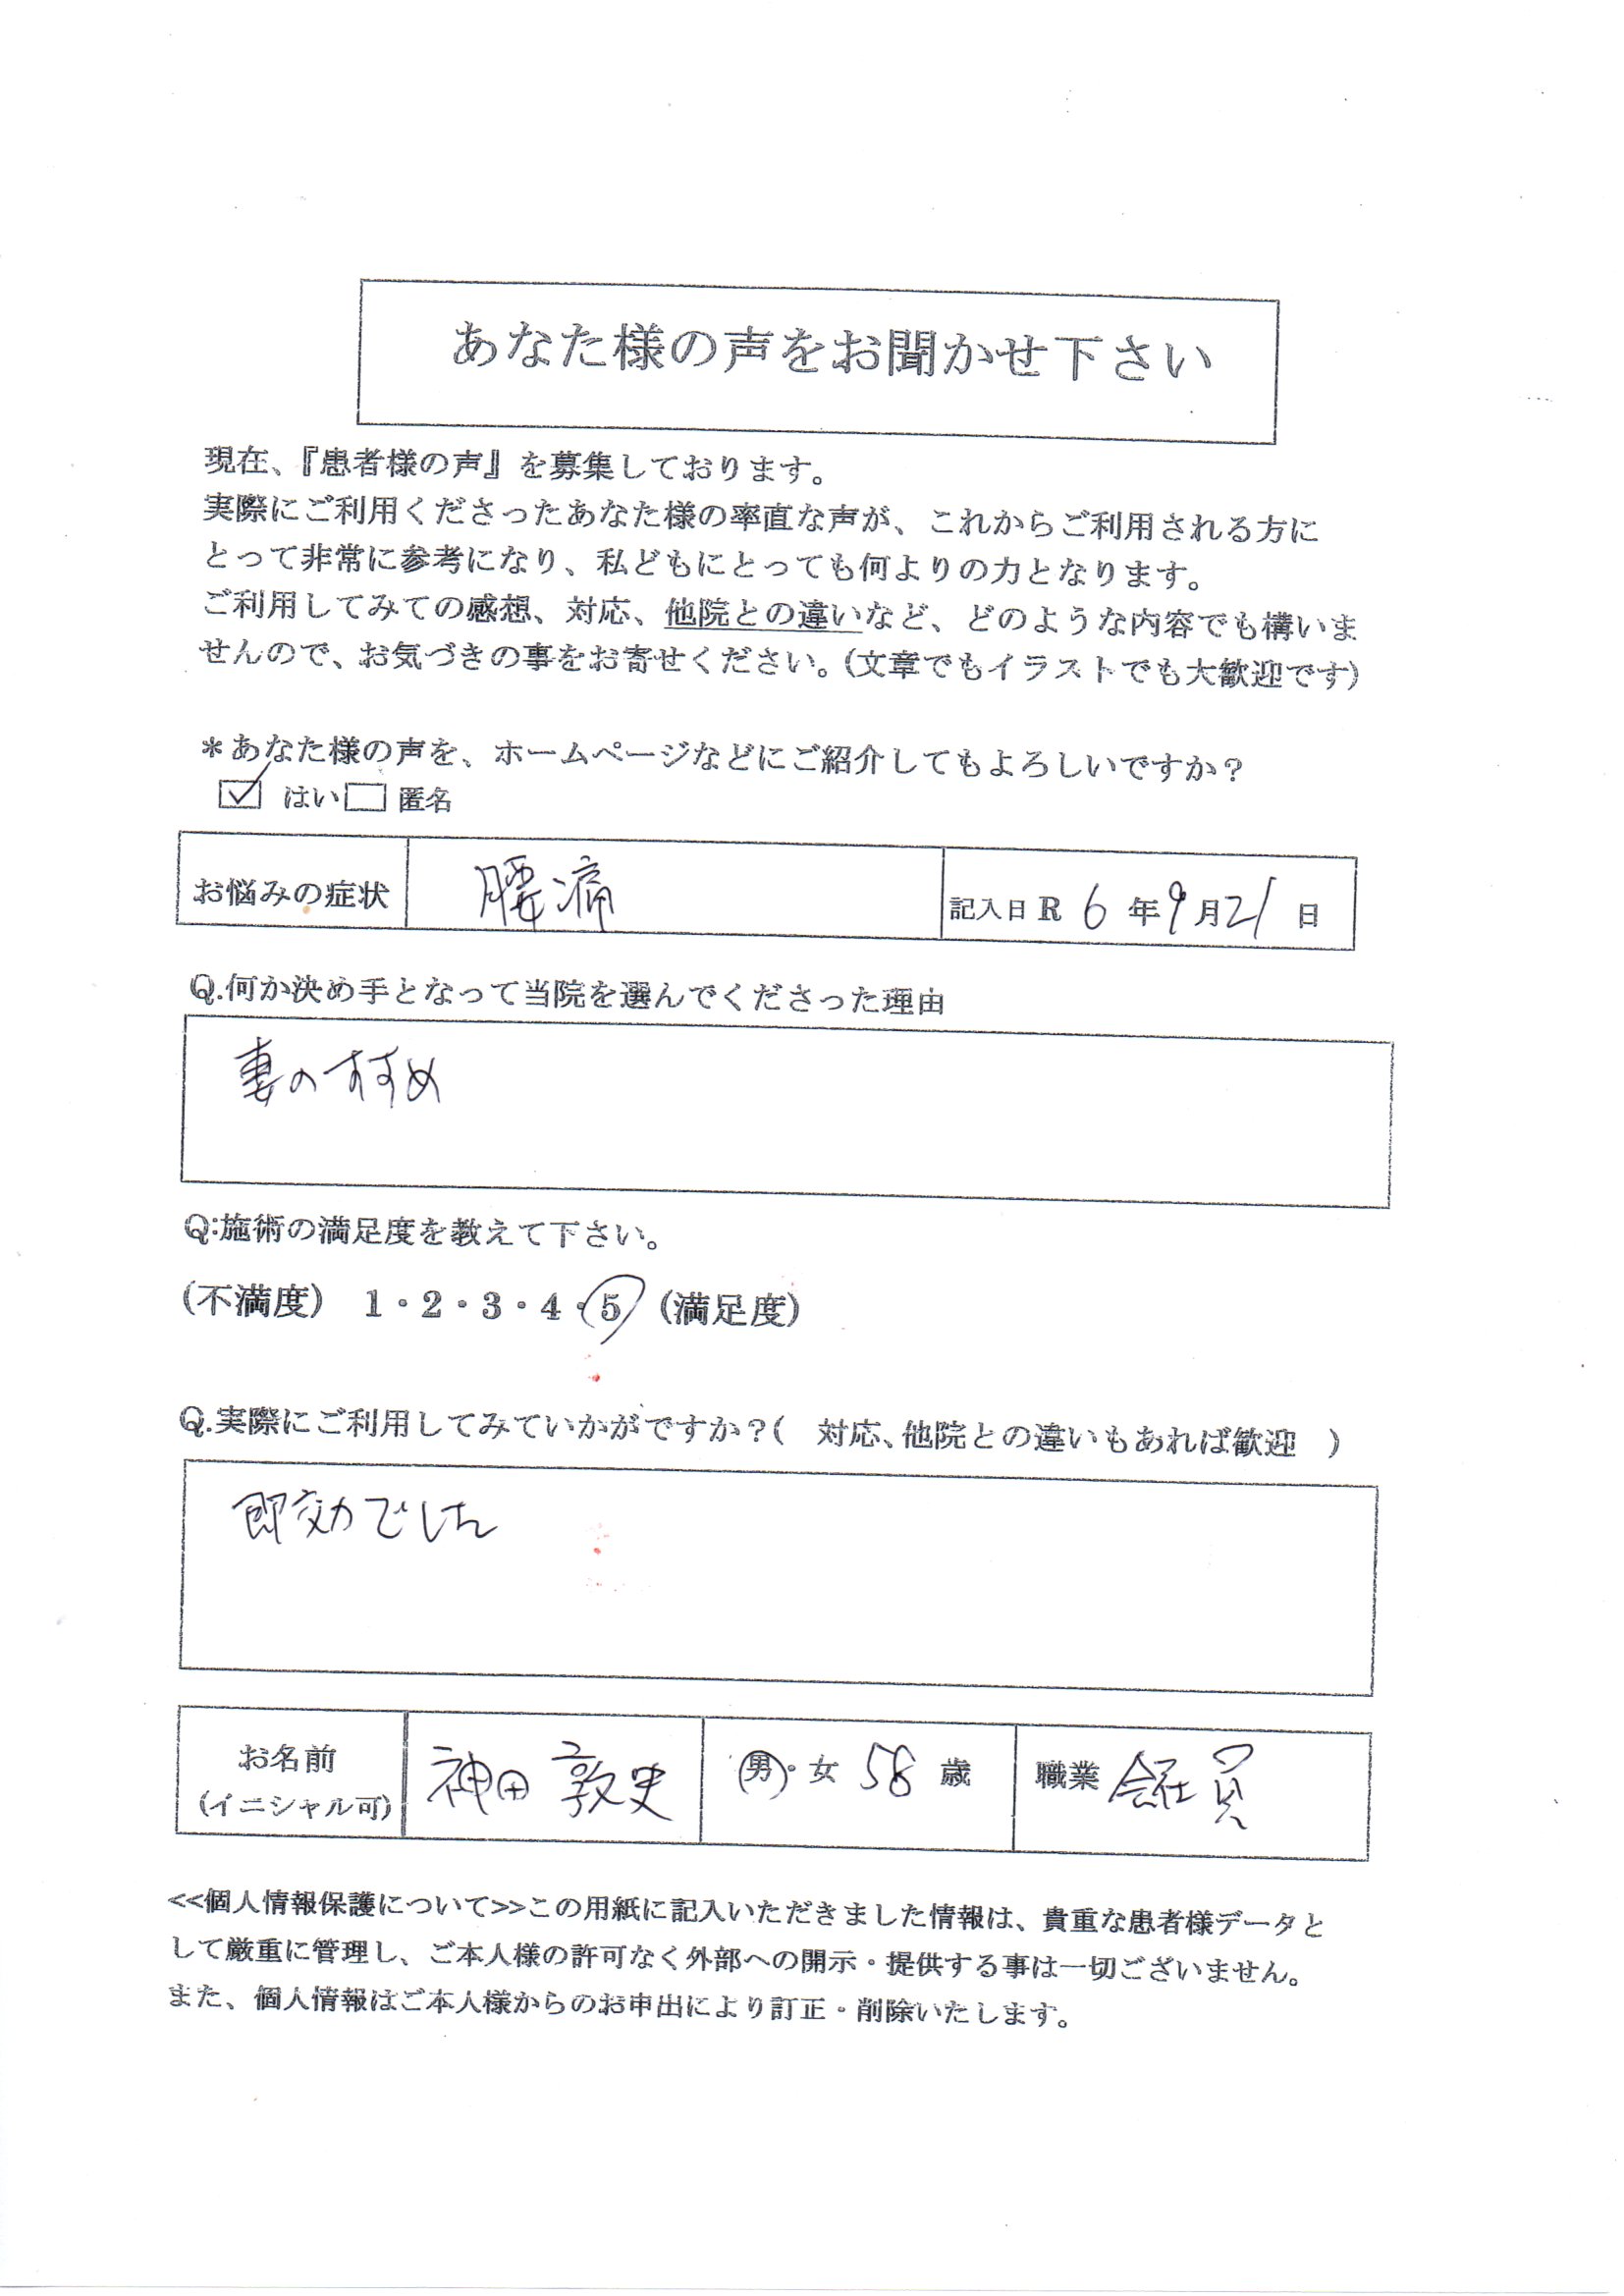 あなた様の声をお聞かせ下さい
現在、『患者様の声』を募集しております。
実際にご利用くださったあなた様の率直な声が、これからご利用される方に
とって非常に参考になり、私どもにとっても何よりの力となります。
ご利用してみての感想、対応、他院との違いなど、どのような内容でも構いま
せんので、お気づきの事をお寄せください。(文章でもイラストでも大歓迎です)
＊あなた様の声を、ホームページなどにご紹介してもよろしいですか？
☑ はい □ 匿名
お悩みの症状 腰痛 記入日 R 6 年 9 月 21 日
Q.何か決め手となって当院を選んでくださった理由
妻のすすめ
Q:施術の満足度を教えて下さい。
(不満度) 1・2・3・4・5 (満足度)
Q.実際にご利用してみていかがですか？( 対応、他院との違いもあれば歓迎 )
即効でした
お名前 神田 敦史 男・女 58 歳 職業 会社員
(イニシャル可)
<<個人情報保護について>>この用紙に記入いただきました情報は、貴重な患者様データと
して厳重に管理し、ご本人様の許可なく外部への開示・提供する事は一切ございません。
また、個人情報はご本人様からのお申出により訂正・削除いたします。